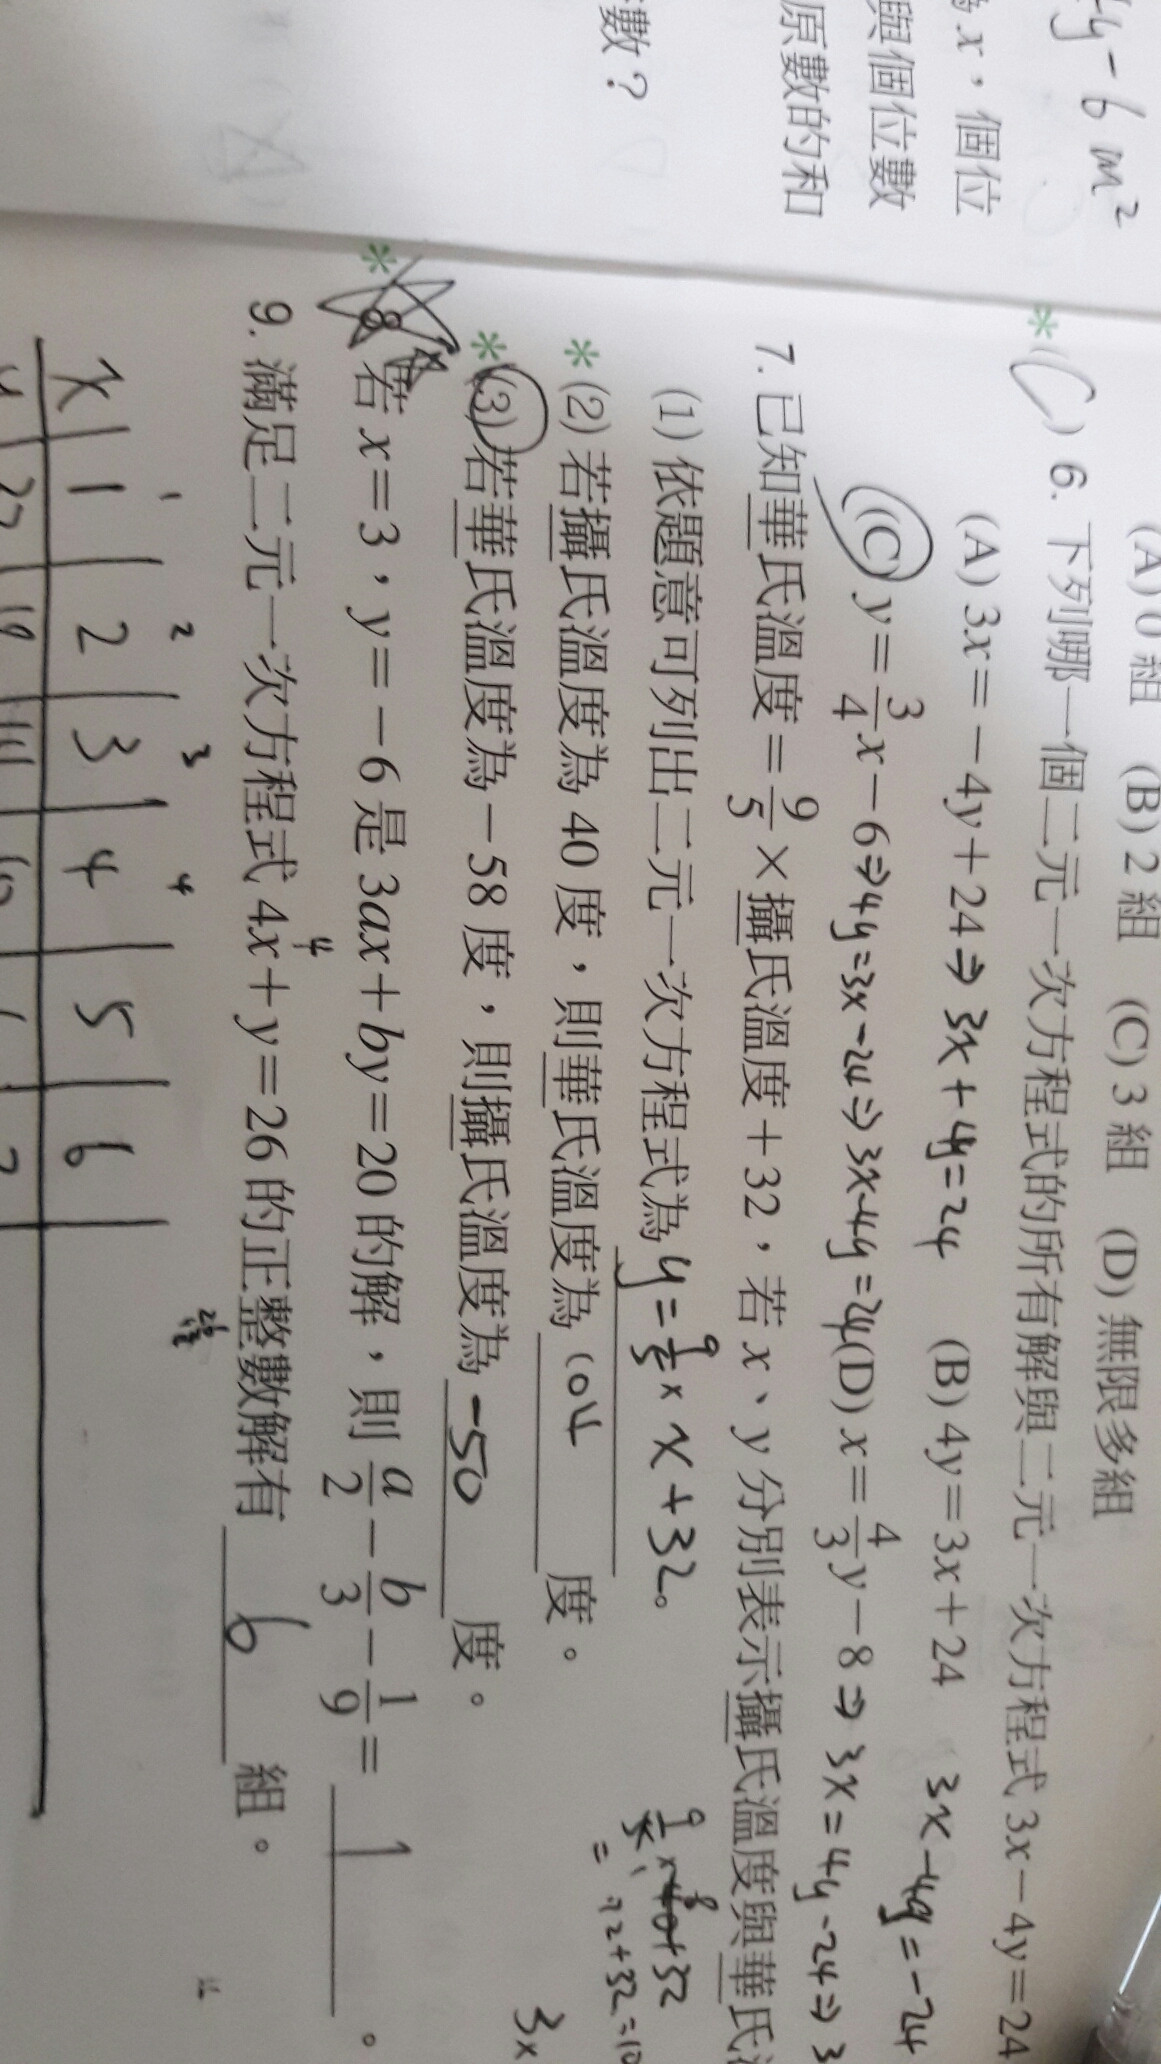 4y-6m²
x，個位
與個位數
原數的和
數？
(A) 0組 (B) 2組 (C) 3組 (D) 無限多組
*(C) 6. 下列哪一個二元一次方程式的所有解與二元一次方程式3x－4y＝24
(A) 3x＝－4y＋24⇒3x+4y=24 (B) 4y＝3x＋24 3x-4y=-24
(C) y＝3/4x－6⇒4y=3x-24⇒3x-4y=24 (D) x＝4/3y－8⇒3x=4y-24⇒3
7. 已知華氏溫度＝9/5×攝氏溫度＋32，若x、y分別表示攝氏溫度與華氏
(1) 依題意可列出二元一次方程式為y=9/5×x+32。
*(2) 若攝氏溫度為40度，則華氏溫度為104度。
9/5×40+32
=72+32=10
*(3) 若華氏溫度為－58度，則攝氏溫度為-50度。
3x
*8. 若x＝3，y＝－6是3ax＋by＝20的解，則a/2－b/3－1/9＝1。
9. 滿足二元一次方程式4x＋y＝26的正整數解有6組。
1 2 3 4
x 1 2 3 4 5 6
y 22 18 14 10